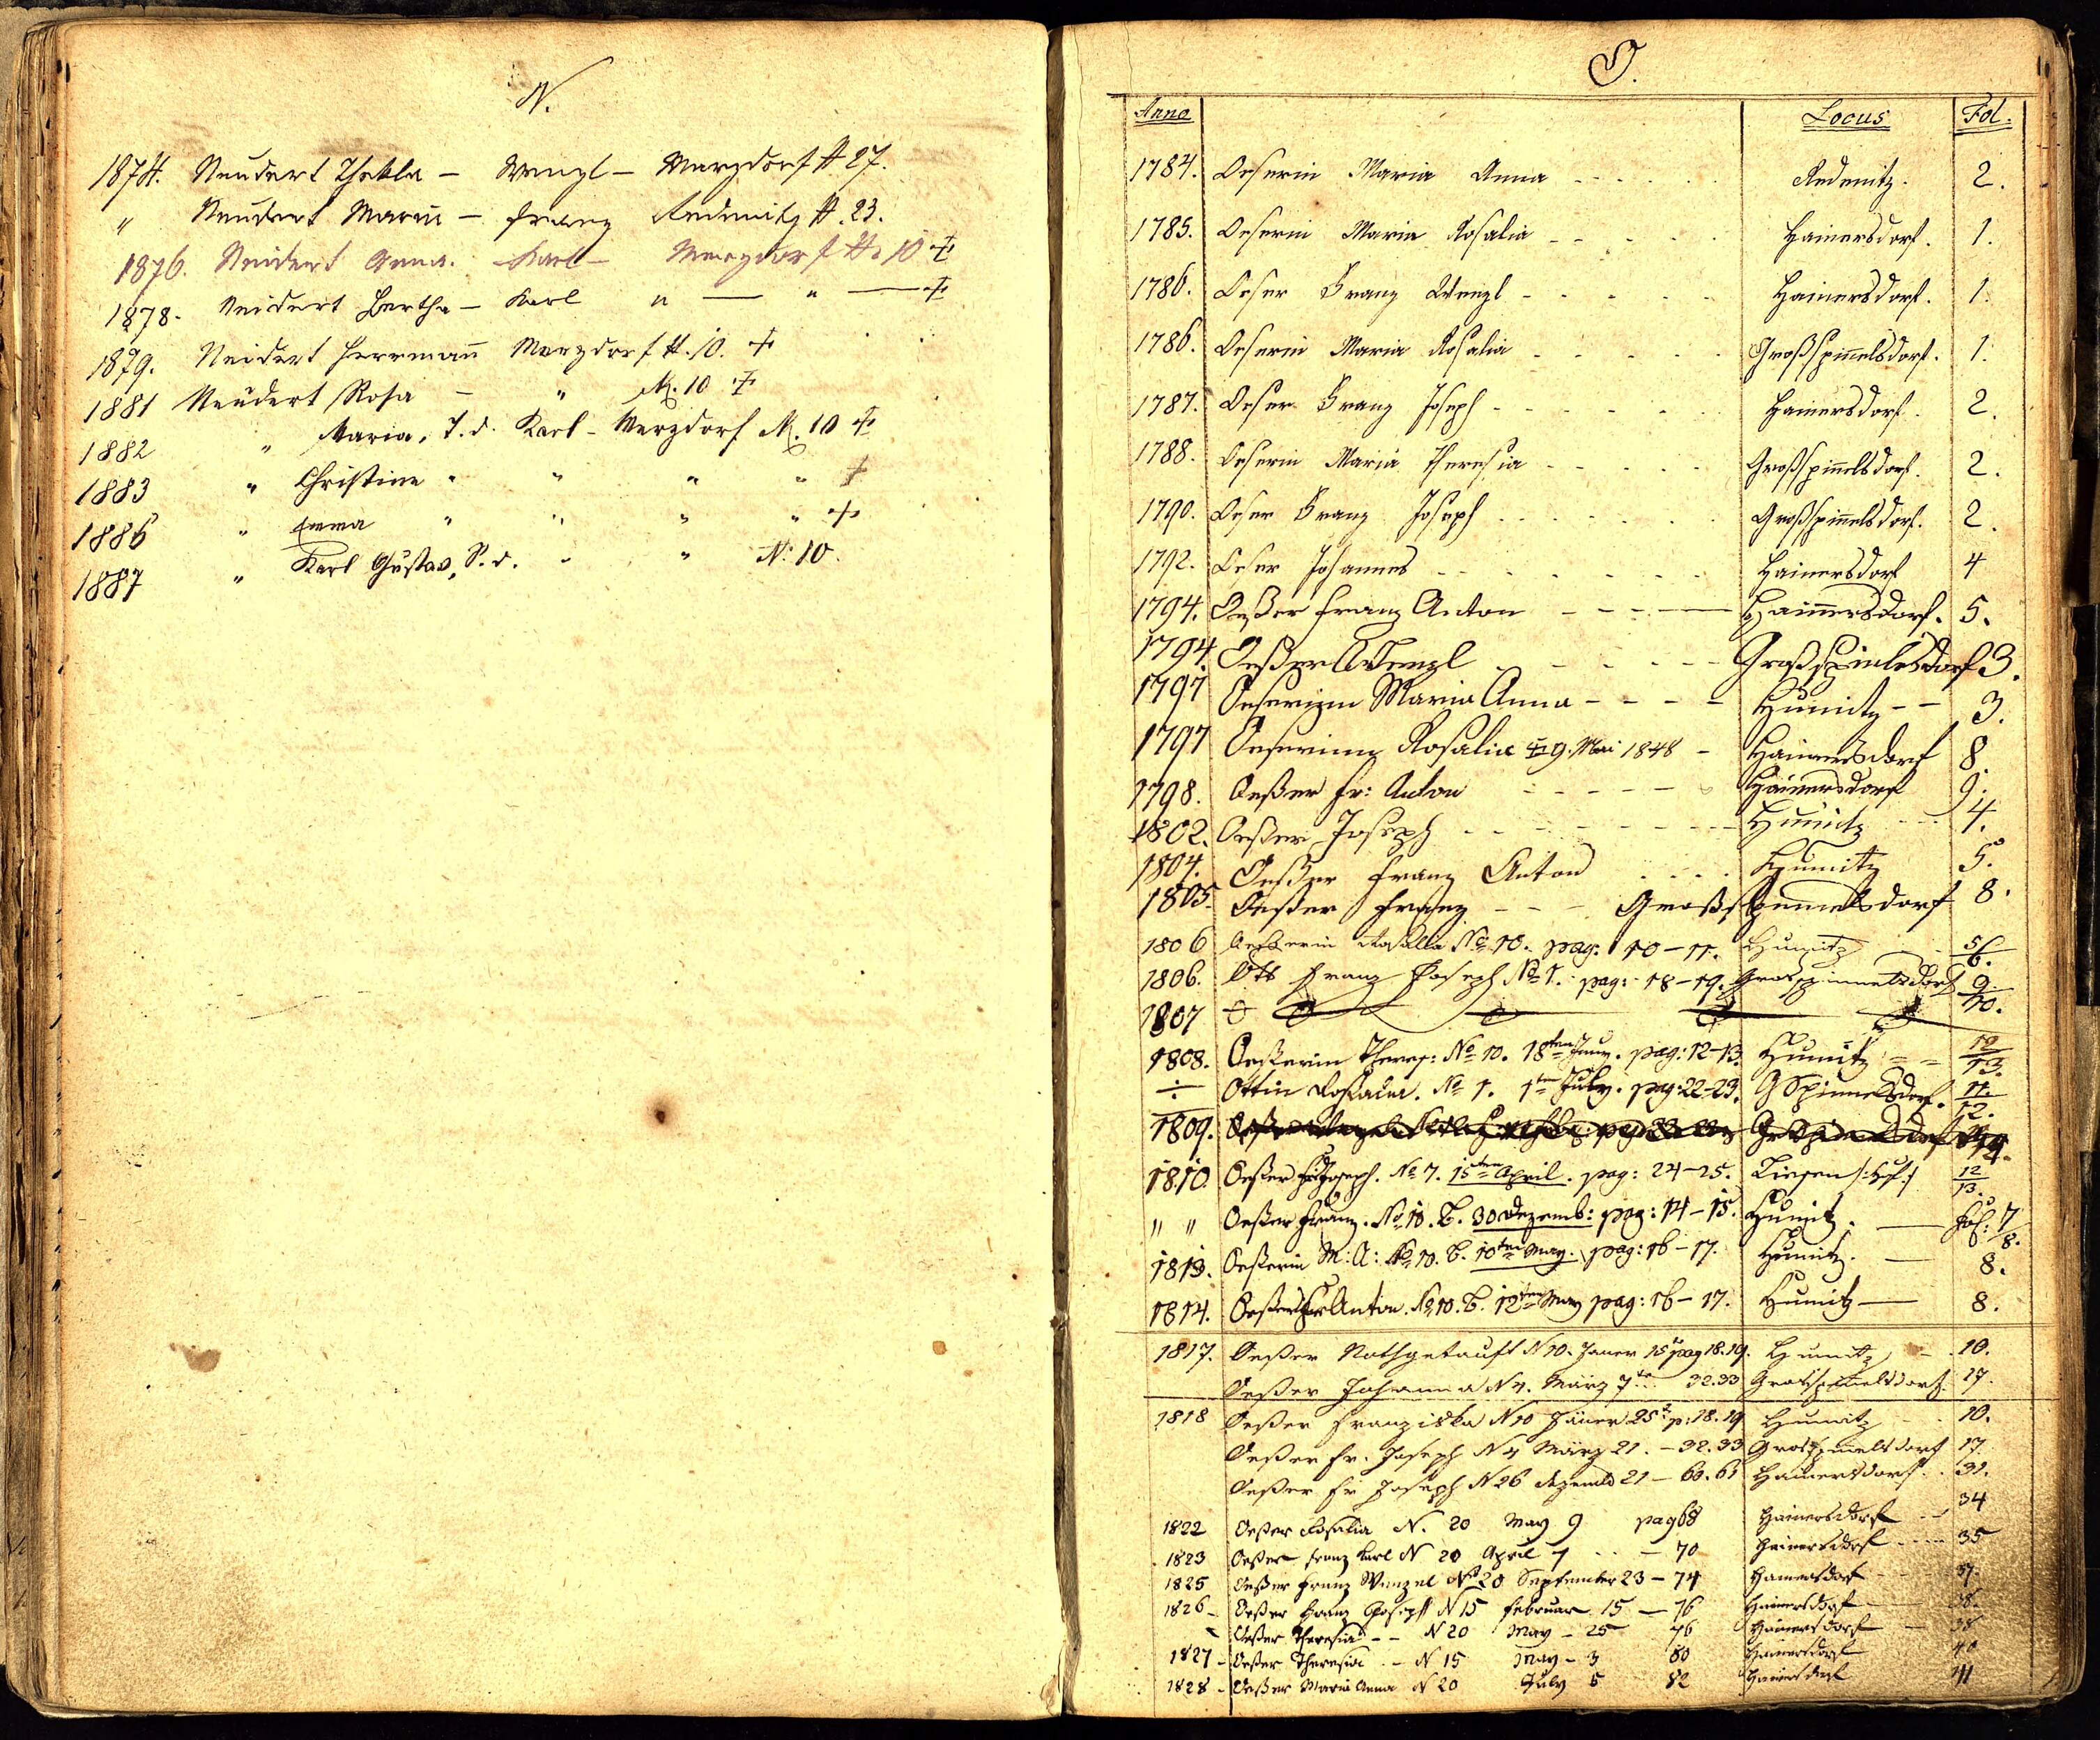 N.
1874. Neudert Thekla – Wenzl – Merzdorf N. 27.
" Neudert Maria – Franz Redenitz N. 23.
1876. Neidert Anna. Karl – Merzdorf N. 10 +
1878. Neidert Bertha – Karl " — " — +
1879. Neidert Herrmann Merzdorf N. 10. +
1881 Neudert Rosa – " N. 10 +
1882 " Maria, T. d. Karl – Merzdorf N. 10 +
1883 " Christine " " " " +
1886 " Emma " " " " +
1887 " Karl Gustav, S. d. " " N: 10.
O.
Anno Locus Fol.
1784. Oeserin Maria Anna Redenitz. 2.
1785. Oeserin Maria Rosalia Hainersdorf. 1.
1786. Oeser Franz Wenzl Hainersdorf. 1.
1786. Oeserin Maria Rosalia Großspinelsdorf. 1.
1787. Oeser Franz Joseph Hainersdorf. 2.
1788. Oeserin Maria Theresia Großspinelsdorf. 2.
1790. Oeser Franz Joseph Großspinelsdorf. 2.
1792. Oeser Johannes Hainersdorf 4
1794. Oeßer Franz Anton Hainersdorf. 5.
1794. Oeßer Wenzl Großspinlesdorf 3.
1797 Oeserizin Maria Anna Humitz 3.
1797 Oeserinn Rosalia + 9. Mai 1848 – Hainersdorf 8.
1798. Oeßer Fr: Anton Hainersdorf 9.
1802. Oeßer Joseph Humitz 4.
1804. Oeßer Franz Anton Humitz 5.
1805. Oeßer Franz Großspinnelsdorf 8.
1806 Oeßerin Rosalia No 10. pag. 10–11. Humitz 5/6.
1806. Ott Franz Joseph No 1. pag: 18–19. Grosspinnelsdorf 9/10.
1807 O O
1808. Oeßerin Theres: No 10. 18ten Juny. pag: 12–13. Humitz 12/13.
÷ Ottin Rosalia. No 1. 1ten July. pag: 22–23. GSpinnelsdorf. 11/12.
1809.
1810. Oeßer Fr Joseph. No 7. 15ten April. pag: 24–25. Liesen /:Hf:/ 12/13.
" " Oeßer Franz. No 10. B. 30 Dezemb: pag: 14–15. Humitz. — Fol: 7/8.
1813. Oeßerin M: A: No 10. B. 10ten May. pag: 16–17. Humitz. — 8.
1814. Oeßer Fr Anton. No 10. B. 12ten May pag: 16–17. Humitz — 8.
1817. Oeßer Nothgetauft N 10. Janer 15t pag 18.19. Humitz 10.
Oeßer Johanna N 4. März 7te 32.33 Grosspinelsdorf. 17.
1818 Oeßer Franziska N 10 Jäner 25t p: 18.19 Humitz 10.
Oeßer Fr. Joseph N 4 März 21. – 32.33 Grosspinnelsdorf 17.
Oeßer Fr Joseph N 26 Dezemb 21 – 60.61 Hainersdorf. 31.
1822 Oeßer Rosalia N. 20 May 9 pag 68 Hainersdorf 34
1823 Oeßer Franz Karl N 20 April 7 – 70 Hainersdorf 35
1825 Oeßer Franz Wenzel No 20 September 23 – 74 Hainersdorf 37.
1826 – Oeßer Franz Joseph N 15 Februar 15 – 76 Hainersdorf 38.
Oeßer Theresia – – N 20 May – 25 76 Hainersdorf 38
1827 – Oeßer Theresia – N 15 May – 3 80 Hainersdorf 40
1828 – Oeßer Maria Anna N 20 July 5 82 Hainersdorf 41